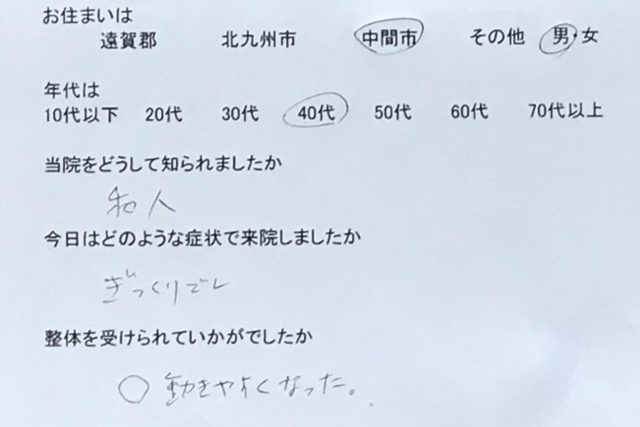 お住まいは
遠賀郡 北九州市 中間市 その他 男・女
年代は
10代以下 20代 30代 40代 50代 60代 70代以上
当院をどうして知られましたか
知人
今日はどのような症状で来院しましたか
ぎっくりごし
整体を受けられていかがでしたか
○ 動きやすくなった。